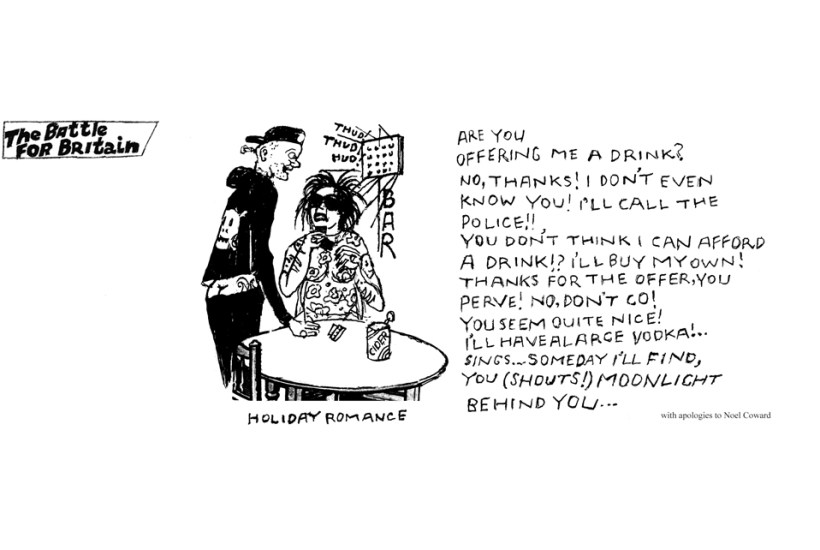 The Battle
FOR BRitain
THUD!
THUD!
HUD!
BAR
CIDER
HOLIDAY ROMANCE
ARE YOU
OFFERING ME A DRINK?
NO, THANKS! I DON'T EVEN
KNOW YOU! I'LL CALL THE
POLICE!!,
YOU DON'T THINK I CAN AFFORD
A DRINK!? I'LL BUY MY OWN!
THANKS FOR THE OFFER, YOU
PERVE! NO, DON'T GO!
YOU SEEM QUITE NICE!
I'LL HAVE A LARGE VODKA!..
SINGS... SOMEDAY I'LL FIND,
YOU (SHOUTS!) MOONLIGHT
BEHIND YOU...
with apologies to Noel Coward